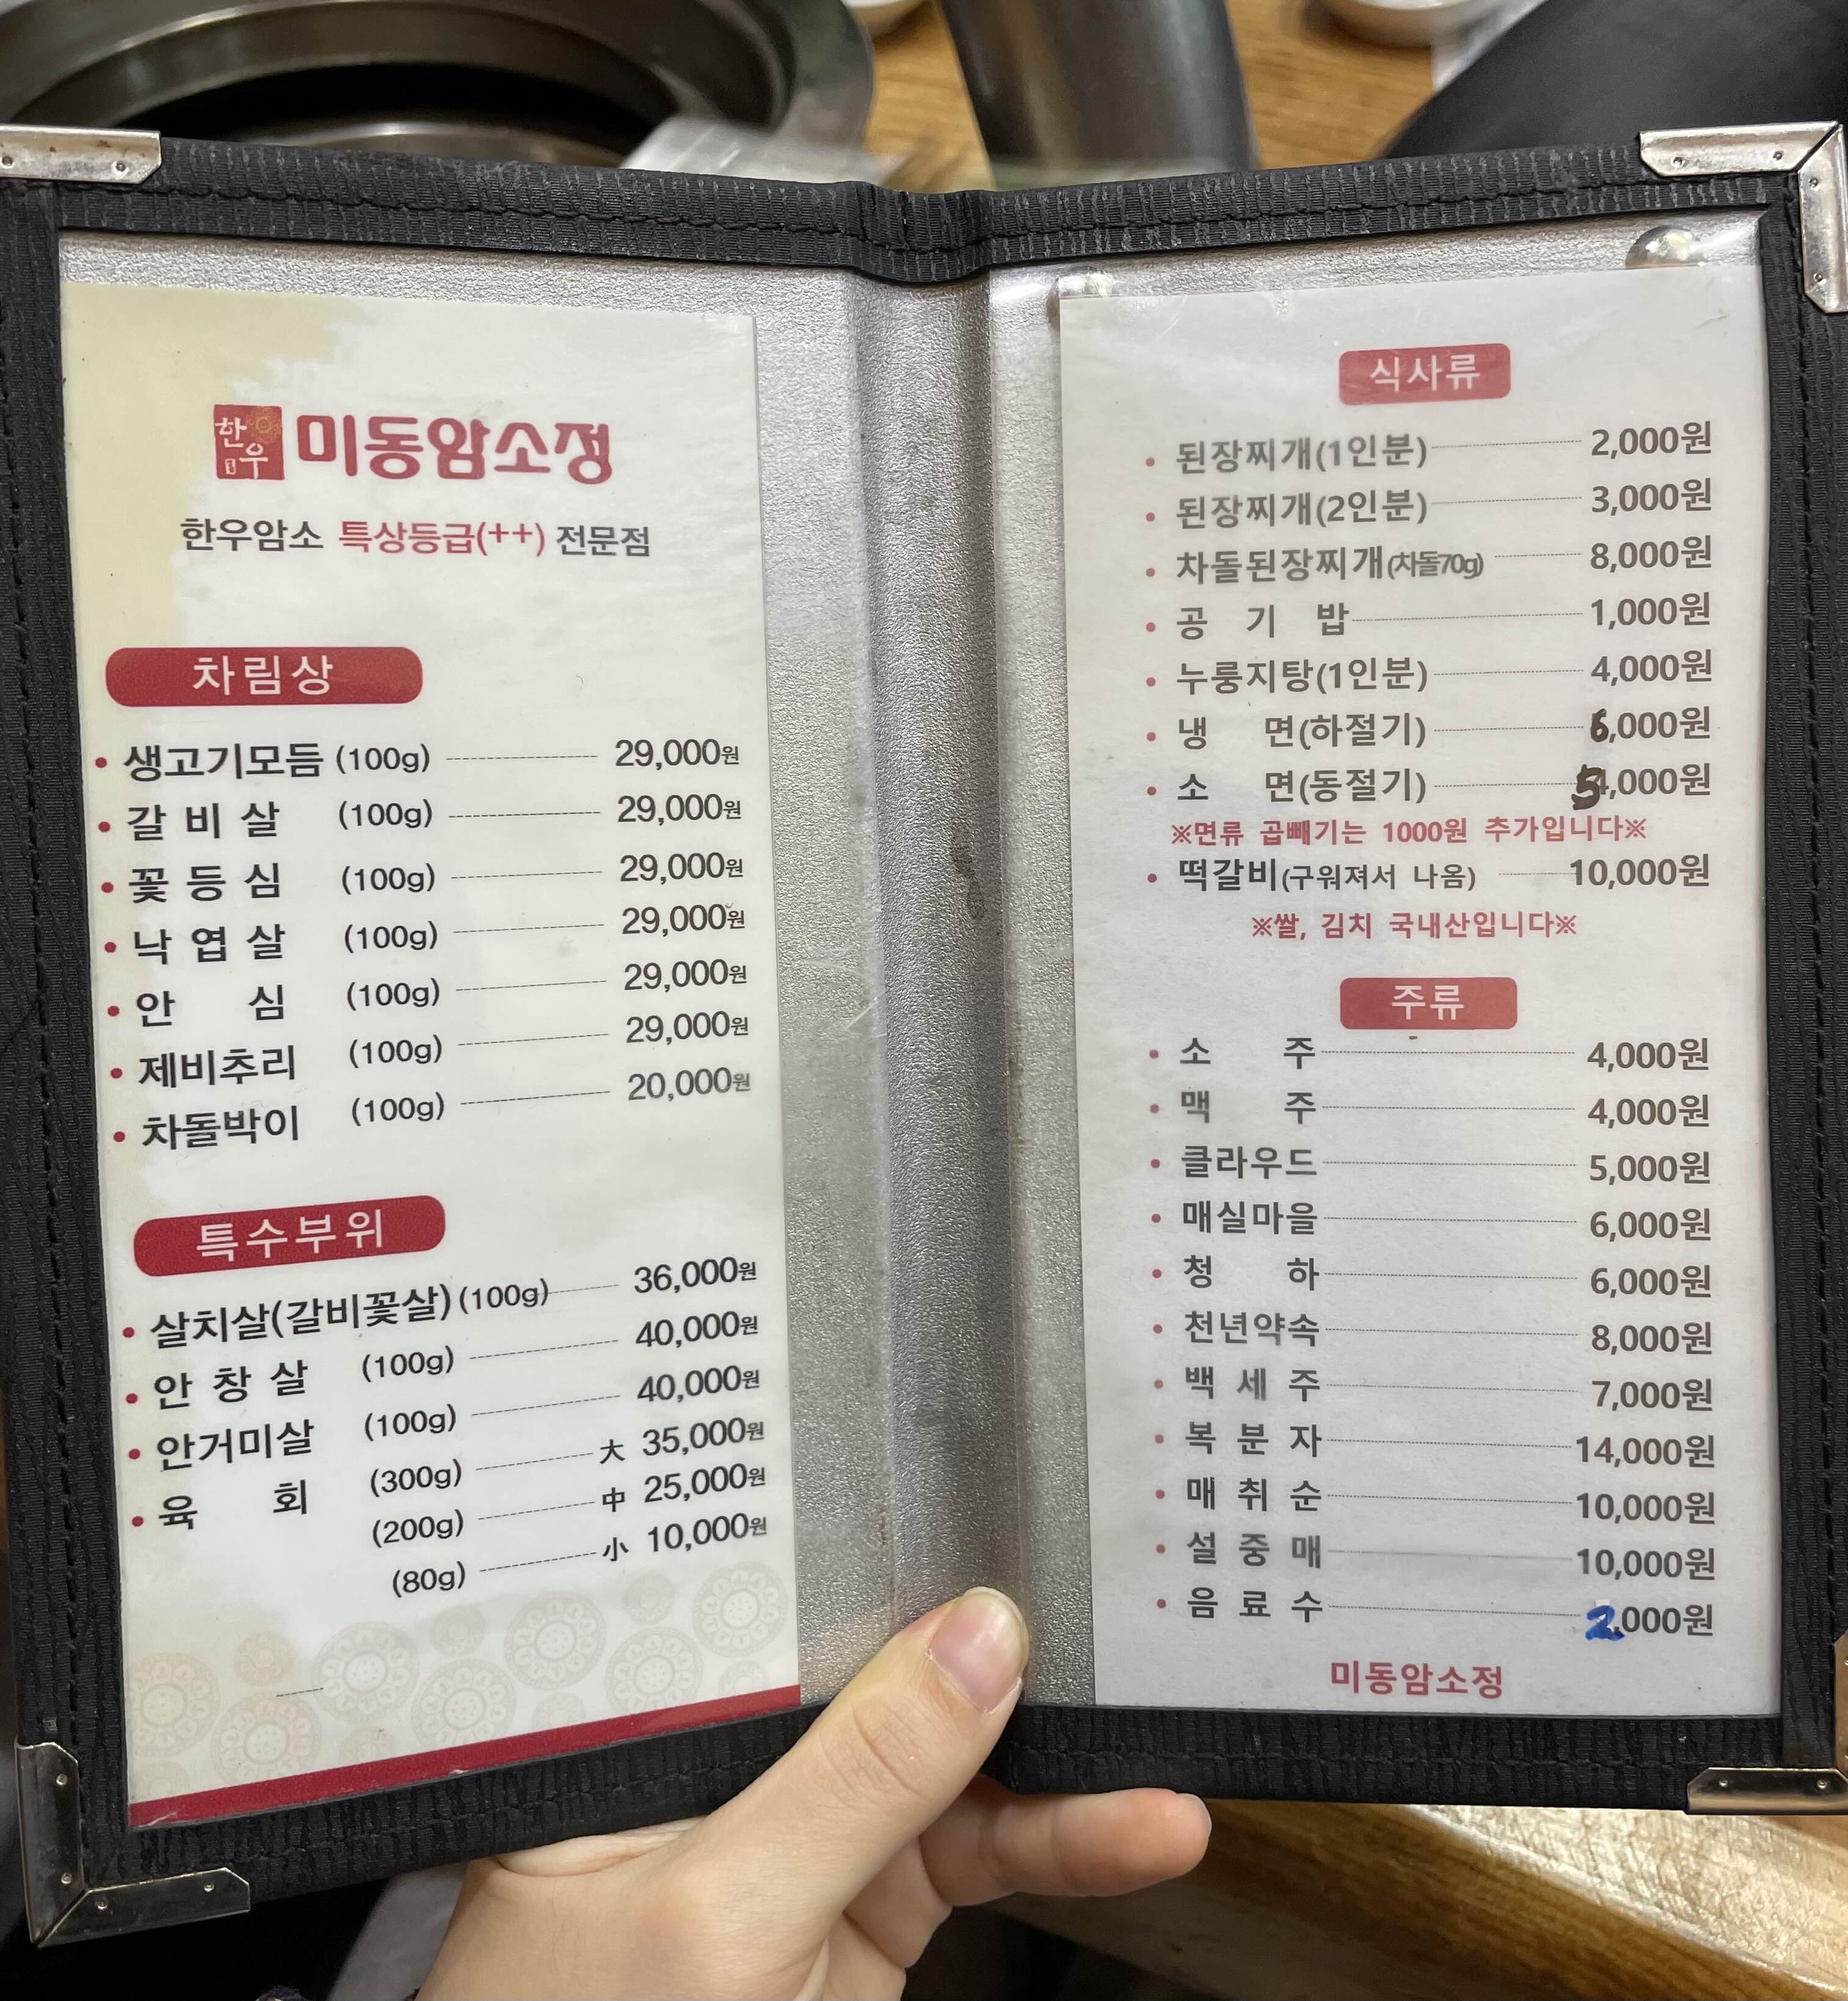 한우 미동암소정
한우암소 특상등급(++) 전문점
차림상
• 생고기모듬 (100g) 29,000원
• 갈비살 (100g) 29,000원
• 꽃등심 (100g) 29,000원
• 낙엽살 (100g) 29,000원
• 안심 (100g) 29,000원
• 제비추리 (100g) 29,000원
• 차돌박이 (100g) 20,000원
특수부위
• 살치살(갈비꽃살) (100g) 36,000원
• 안창살 (100g) 40,000원
• 안거미살 (100g) 40,000원
• 육회 (300g) 大 35,000원
(200g) 中 25,000원
(80g) 小 10,000원
식사류
• 된장찌개(1인분) 2,000원
• 된장찌개(2인분) 3,000원
• 차돌된장찌개(차돌70g) 8,000원
• 공기밥 1,000원
• 누룽지탕(1인분) 4,000원
• 냉면(하절기) 6,000원
• 소면(동절기) 5,000원
※면류 곱빼기는 1000원 추가입니다※
• 떡갈비(구워져서 나옴) 10,000원
※쌀, 김치 국내산입니다※
주류
• 소주 4,000원
• 맥주 4,000원
• 클라우드 5,000원
• 매실마을 6,000원
• 청하 6,000원
• 천년약속 8,000원
• 백세주 7,000원
• 복분자 14,000원
• 매취순 10,000원
• 설중매 10,000원
• 음료수 2,000원
미동암소정